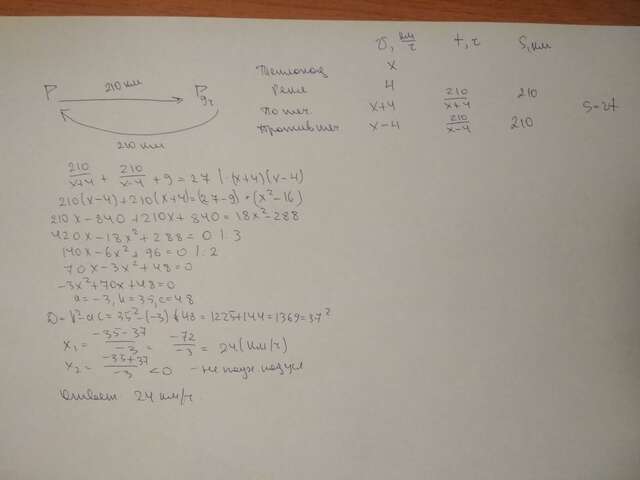 υ, км/ч t, ч S, км
Теплоход x
Река 4
По теч x+4 210/x+4 210
Против теч x-4 210/x-4 210
S=υt
P 210 км P 9ч
210 км
210/x+4 + 210/x-4 + 9 = 27 | ·(x+4)(x-4)
210(x-4)+210(x+4)=(27-9)·(x²-16)
210x-840+210x+840=18x²-288
420x-18x²+288=0 |:3
140x-6x²+96=0 |:2
70x-3x²+48=0
-3x²+70x+48=0
a=-3, k=35, c=48
D=k²-ac=35²-(-3)·48=1225+144=1369=37²
x₁= -35-37/-3 = -72/-3 = 24(км/ч)
x₂= -35+37/-3 <0 - не подх
Ответ 24 км/ч